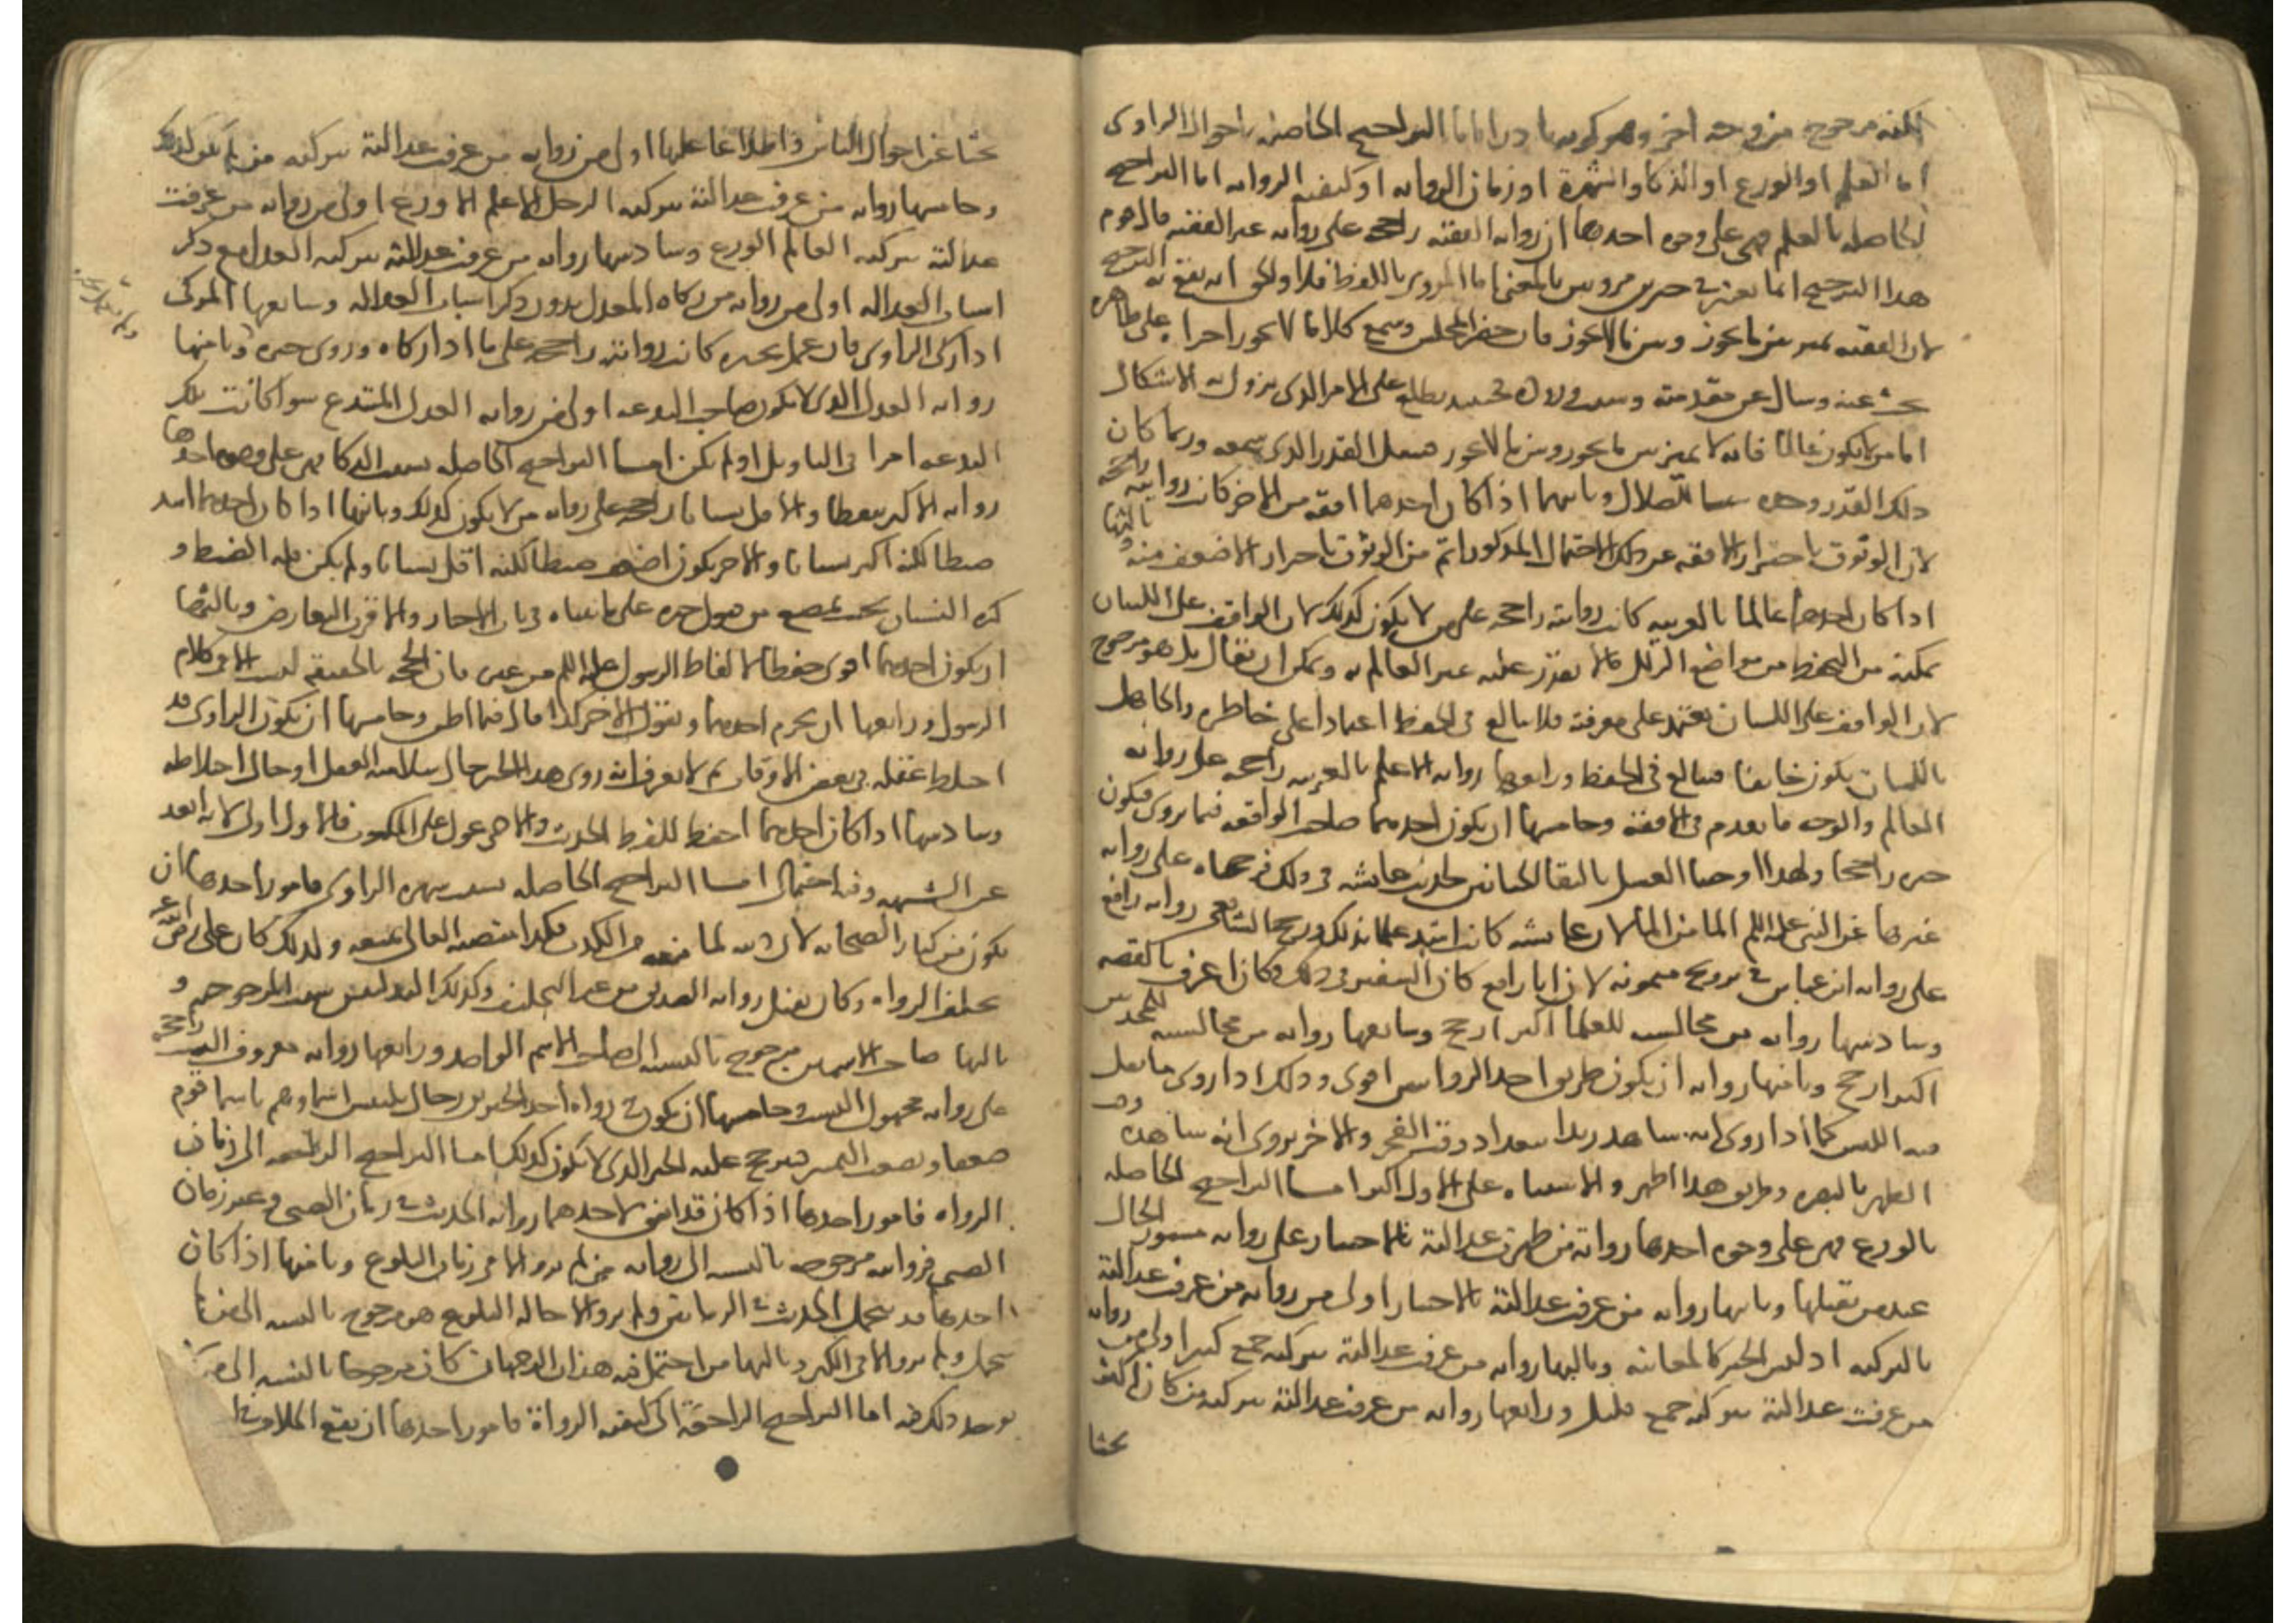 لكنه مرجوح من وجه اخر وهو كونه نادرا اما التراجيح الحاصلة باحوال الراوى
اما العلم او الورع او الذكا والشهرة او زمان الرواية او كيفية الرواية اما التراجيح
الحاصلة بالعلم فهى على وجوه احدها ان رواية الفقيه راجحة على رواية غير الفقيه قال قوم
هذا الترجيح انما يعتبر فى خبرين مرويين بالمعنى اما المروى باللفظ فلا والحق انه يقع به الترجيح
لان الفقيه يميز بين ما يجوز وبين ما لا يجوز فان حضر المجلس وسمع كلاما لا يجوز اجراه على ظاهره
بحث عنه وسال عن مقدمته وسبب وروده فحينئذ يطلع على الامر الذى يزول به الاشكال
اما من لا يكون عالما فانه لا يميز بين ما يجوز وبين ما لا يجوز فينقل القدر الذى سمعه وربما كان
ذلك القدر وحده سببا للضلال وثانيها اذا كان احدهما افقه من الاخر كانت روايته راجحة
لان الوثوق باحتراز الافقه عن ذلك الاحتمال المذكور اتم من الوثوق باحتراز الاضعف منه وثالثها
اذا كان احدهما عالما بالعربية كانت روايته راجحة على من لا يكون كذلك لان الواقف على اللسان
يمكنه من التحفظ من مواضع الزلل ما لا يقدر عليه غير العالم به ويمكن ان يقال بل هو مرجوح
لان الواقف على اللسان يعتمد على معرفته فلا يبالغ فى الحفظ اعتمادا على خاطره والجاهل
باللسان يكون خائفا فيبالغ فى الحفظ ورابعها رواية الاعلم بالعربية راجحة على رواية
العالم والوجه ما تقدم فى الافقه وخامسها ان يكون احدهما صاحب الواقعة فيما يروى فيكون
خبره راجحا ولهذا اوجبنا الغسل بالتقا الختانين لحديث عايشه فى ذلك فرجحناه على رواية
غيرها عن النبى عليه السلم الما من الما لان عايشه كانت اشد علما بذلك ورجح الشافعى رواية رافع
على رواية ابن عباس فى تزويج ميمونه لان ابا رافع كان السفير فى ذلك وكان اعرف بالقصه
وسادسها رواية من مجالسته للعلما اكثر ارجح وسابعها رواية من مجالسته للمحدثين
اكثر ارجح وثامنها رواية ان يكون طريق احد الراويين اقوى وذلك اذا روى ما يقل
فيه اللبس كما اذا روى انه شاهد زيدا ببغداد وقت الفجر والاخر يروى انه شاهده وقت
الظهر بالبصره وطريق هذا اظهر والاشتباه على الاول اكثر اما التراجيح الحاصلة
بالورع فهى على وجوه احدها رواية من ظهرت عدالته بالاختبار على رواية مستور الحال
عند من يقبلها وثانيها رواية من عرفت عدالته بالاختبار اولى من رواية من عرفت عدالته
بالتزكيه اذ ليس الخبر كالمعاينه وثالثها رواية من عرفت عدالته بتزكية جمع كثير اولى من رواية
من عرفت عدالته بتزكية جمع قليل ورابعها رواية من عرفت عدالته بتزكية من كان اكثر
بحثا
بحثا عن احوال الناس واطلاعا عليها اولى من رواية من عرفت عدالته بتزكية من لم يكن كذلك
وخامسها رواية من عرفت عدالته بتزكية الرجل الاعلم الاورع اولى من رواية من عرفت
عدالته بتزكية العالم الورع وسادسها رواية من عرفت عدالته بتزكية المعدل مع ذكر
اسباب العداله اولى من رواية من زكاه المعدل بدون ذكر اسباب العداله وسابعها المزكى
اذا زكى الراوى فان عمل بخبره كانت روايته راجحة على ما اذا زكاه وروى خبره وثامنها
رواية العدل الذى لا يكون صاحب البدعه اولى من رواية العدل المبتدع سوا كانت تلك
البدعه كفرا فى التاويل او لم يكن اما التراجيح الحاصلة بسبب الذكا فهى على وجوه احدها
رواية الاكثر تيقظا والاقل نسيانا راجحة على رواية من لا يكون كذلك وثانيها اذا كان احدهما اشد
ضبطا لكنه اكثر نسيانا والاخر يكون اضعف ضبطا لكنه اقل نسيانا ولم يكن قلة الضبط و
كثرة النسيان بحيث يمنع من قبول خبره على ما بيناه فى باب الاخبار والاقرب التعارض وثالثها
ان يكون احدهما اقوى حفظا لالفاظ الرسول عليه السلم من غيره فان الحجة بالحقيقة ليست الا فى كلام
الرسول ورابعها ان يجزم احدهما ويقول الاخر كذا قال فيما اظن وخامسها ان يكون الراوى قد
اختلط عقله فى بعض الاوقات ثم لا يعرف انه روى هذا الخبر حال سلامة العقل او حال اختلاطه
وسادسها اذا كان احدهما احفظ للفظ الحديث والاخر عول على المكتوب فالاول اولى لانه ابعد
عن الشبهه وفيه احتمال اما التراجيح الحاصلة بسبب شهرة الراوى فامور احدها ان
يكون من كبار الصحابه لان دينه لما منعه من الكذب فكذا منصبه العالى يمنعه ولذلك كان على رضى الله عنه
يحلف الرواه وكان يقبل رواية الصديق من غير التحليف وكذلك التدليس سبب المرجوحيه و
ثالثها صاحب الاسمين مرجوح بالنسبه الى صاحب الاسم الواحد ورابعها رواية معروف النسب راجحة
على رواية مجهول النسب وخامسها ان يكون فى رواة احد الخبرين رجال يلتبس اسماوهم باسما قوم
ضعفا ويصعب التمييز فيرجح عليه الخبر الذى لا يكون كذلك اما التراجيح الراجعه الى زمان
الرواه فامور احدها اذا كان قد اتفق لاحدهما رواية الحديث فى زمان الصبى وغير زمان
الصبى فروايته مرجوحه بالنسبه الى رواية من لم يرو الا فى زمان البلوغ وثانيها اذا كان
احدهما قد تحمل الحديث فى الزمانين ولم يرو الا حالة البلوغ هو مرجوح بالنسبه الى من لم
يتحمل ولم يرو الا فى الكبر وثالثها من احتمل فيه هذان الوجهان كان مرجوحا بالنسبه الى من لم
يوجد ذلك فيه اما التراجيح الراجعة الى كيفية الرواية فامور احدها ان يقع الخلاف فى